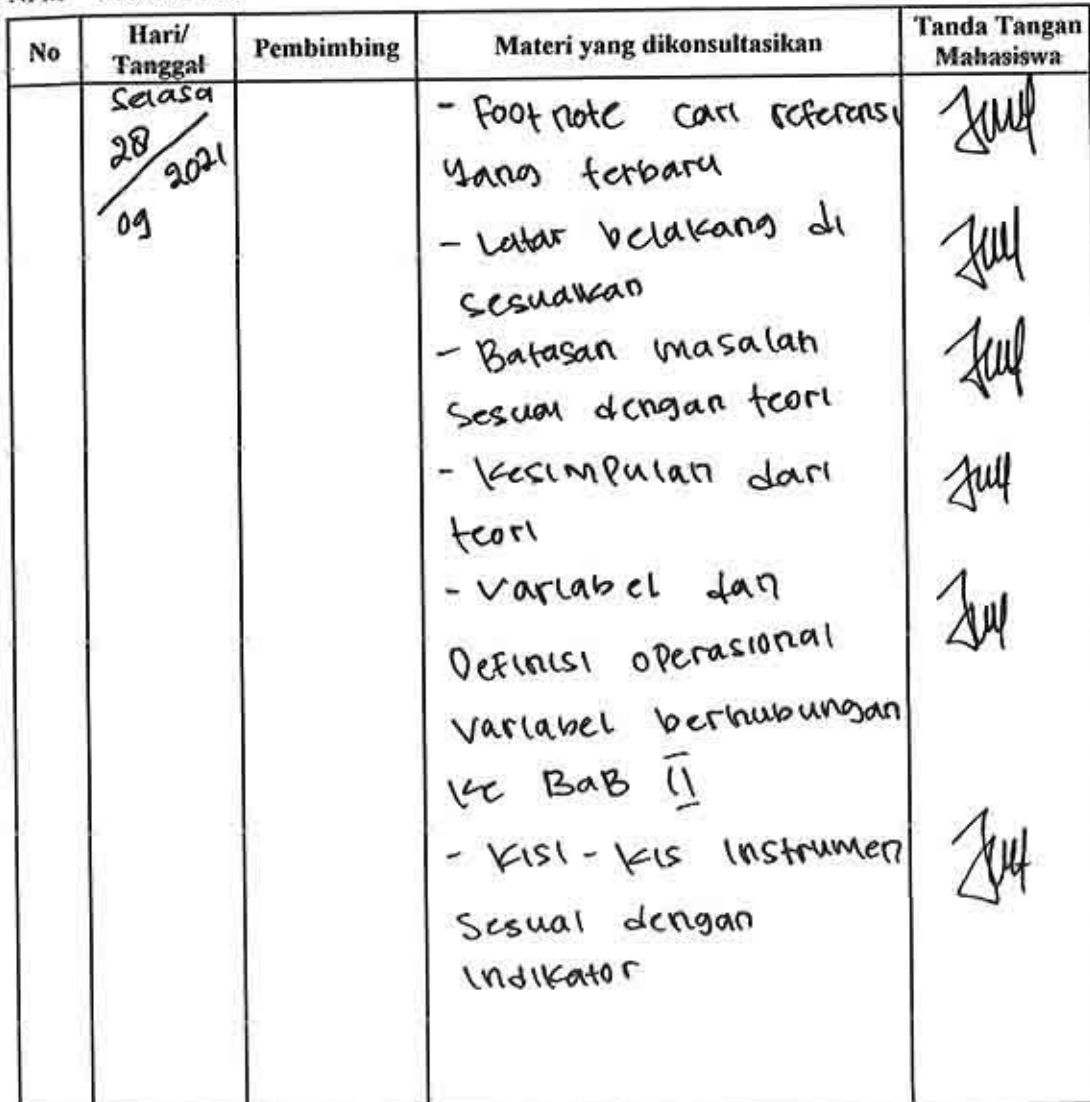 No
Hari/
Tanggal
Pembimbing
Materi yang dikonsultasikan
Tanda Tangan
Mahasiswa
Selasa
28
/ 2021
09
- Footnote cari referensi
yang terbaru
- Latar belakang di
sesuaikan
- Batasan masalah
Sesuai dengan teori
- Kesimpulan dari
teori
- Variabel dan
Definisi operasional
Variabel berhubungan
Ke BaB II
- Kisi - kis instrumen
Sesuai dengan
Indikator